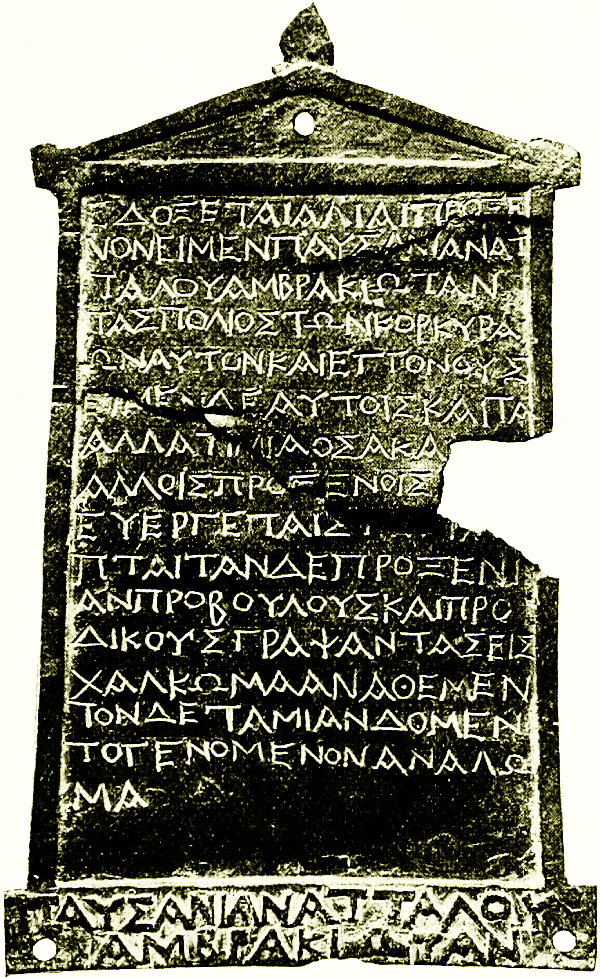 ΕΔΟΞΕΤΑΙΑΛΙΑΙΠΡΟΞΕ
ΝΟΝΕΙΜΕΝΠΑΥΣΑΝΙΑΝΑΤ
ΤΑΛΟΥΑΜΒΡΑΚΙΩΤΑΝ
ΤΑΣΠΟΛΙΟΣΤΩΝΚΟΡΚΥΡΑ
ΩΝΑΥΤΟΝΚΑΙΕΓΓΟΝΟΥΣ
ΕΙΜΕΝΔΕΑΥΤΟΙΣΚΑΙΤΑ
ΑΛΛΑΤΙΜΙΑΟΣΑΚΑ
ΑΛΛΟΙΣΠΡΟΞΕΝΟΙΣ
ΕΥΕΡΓΕΤΑΙΣ
ΠΤΑΙΤΑΝΔΕΠΡΟΞΕΝΙ
ΑΝΠΡΟΒΟΥΛΟΥΣΚΑΙΠΡΟ
ΔΙΚΟΥΣΓΡΑΨΑΝΤΑΣΕΙΣ
ΧΑΛΚΩΜΑΑΝΑΘΕΜΕΝ
ΤΟΝΔΕΤΑΜΙΑΝΔΟΜΕΝ
ΤΟΓΕΝΟΜΕΝΟΝΑΝΑΛΩ
ΜΑ
ΠΑΥΣΑΝΙΑΝΑΤΤΑΛΟΥ
ΑΜΒΡΑΚΙΩΤΑΝ